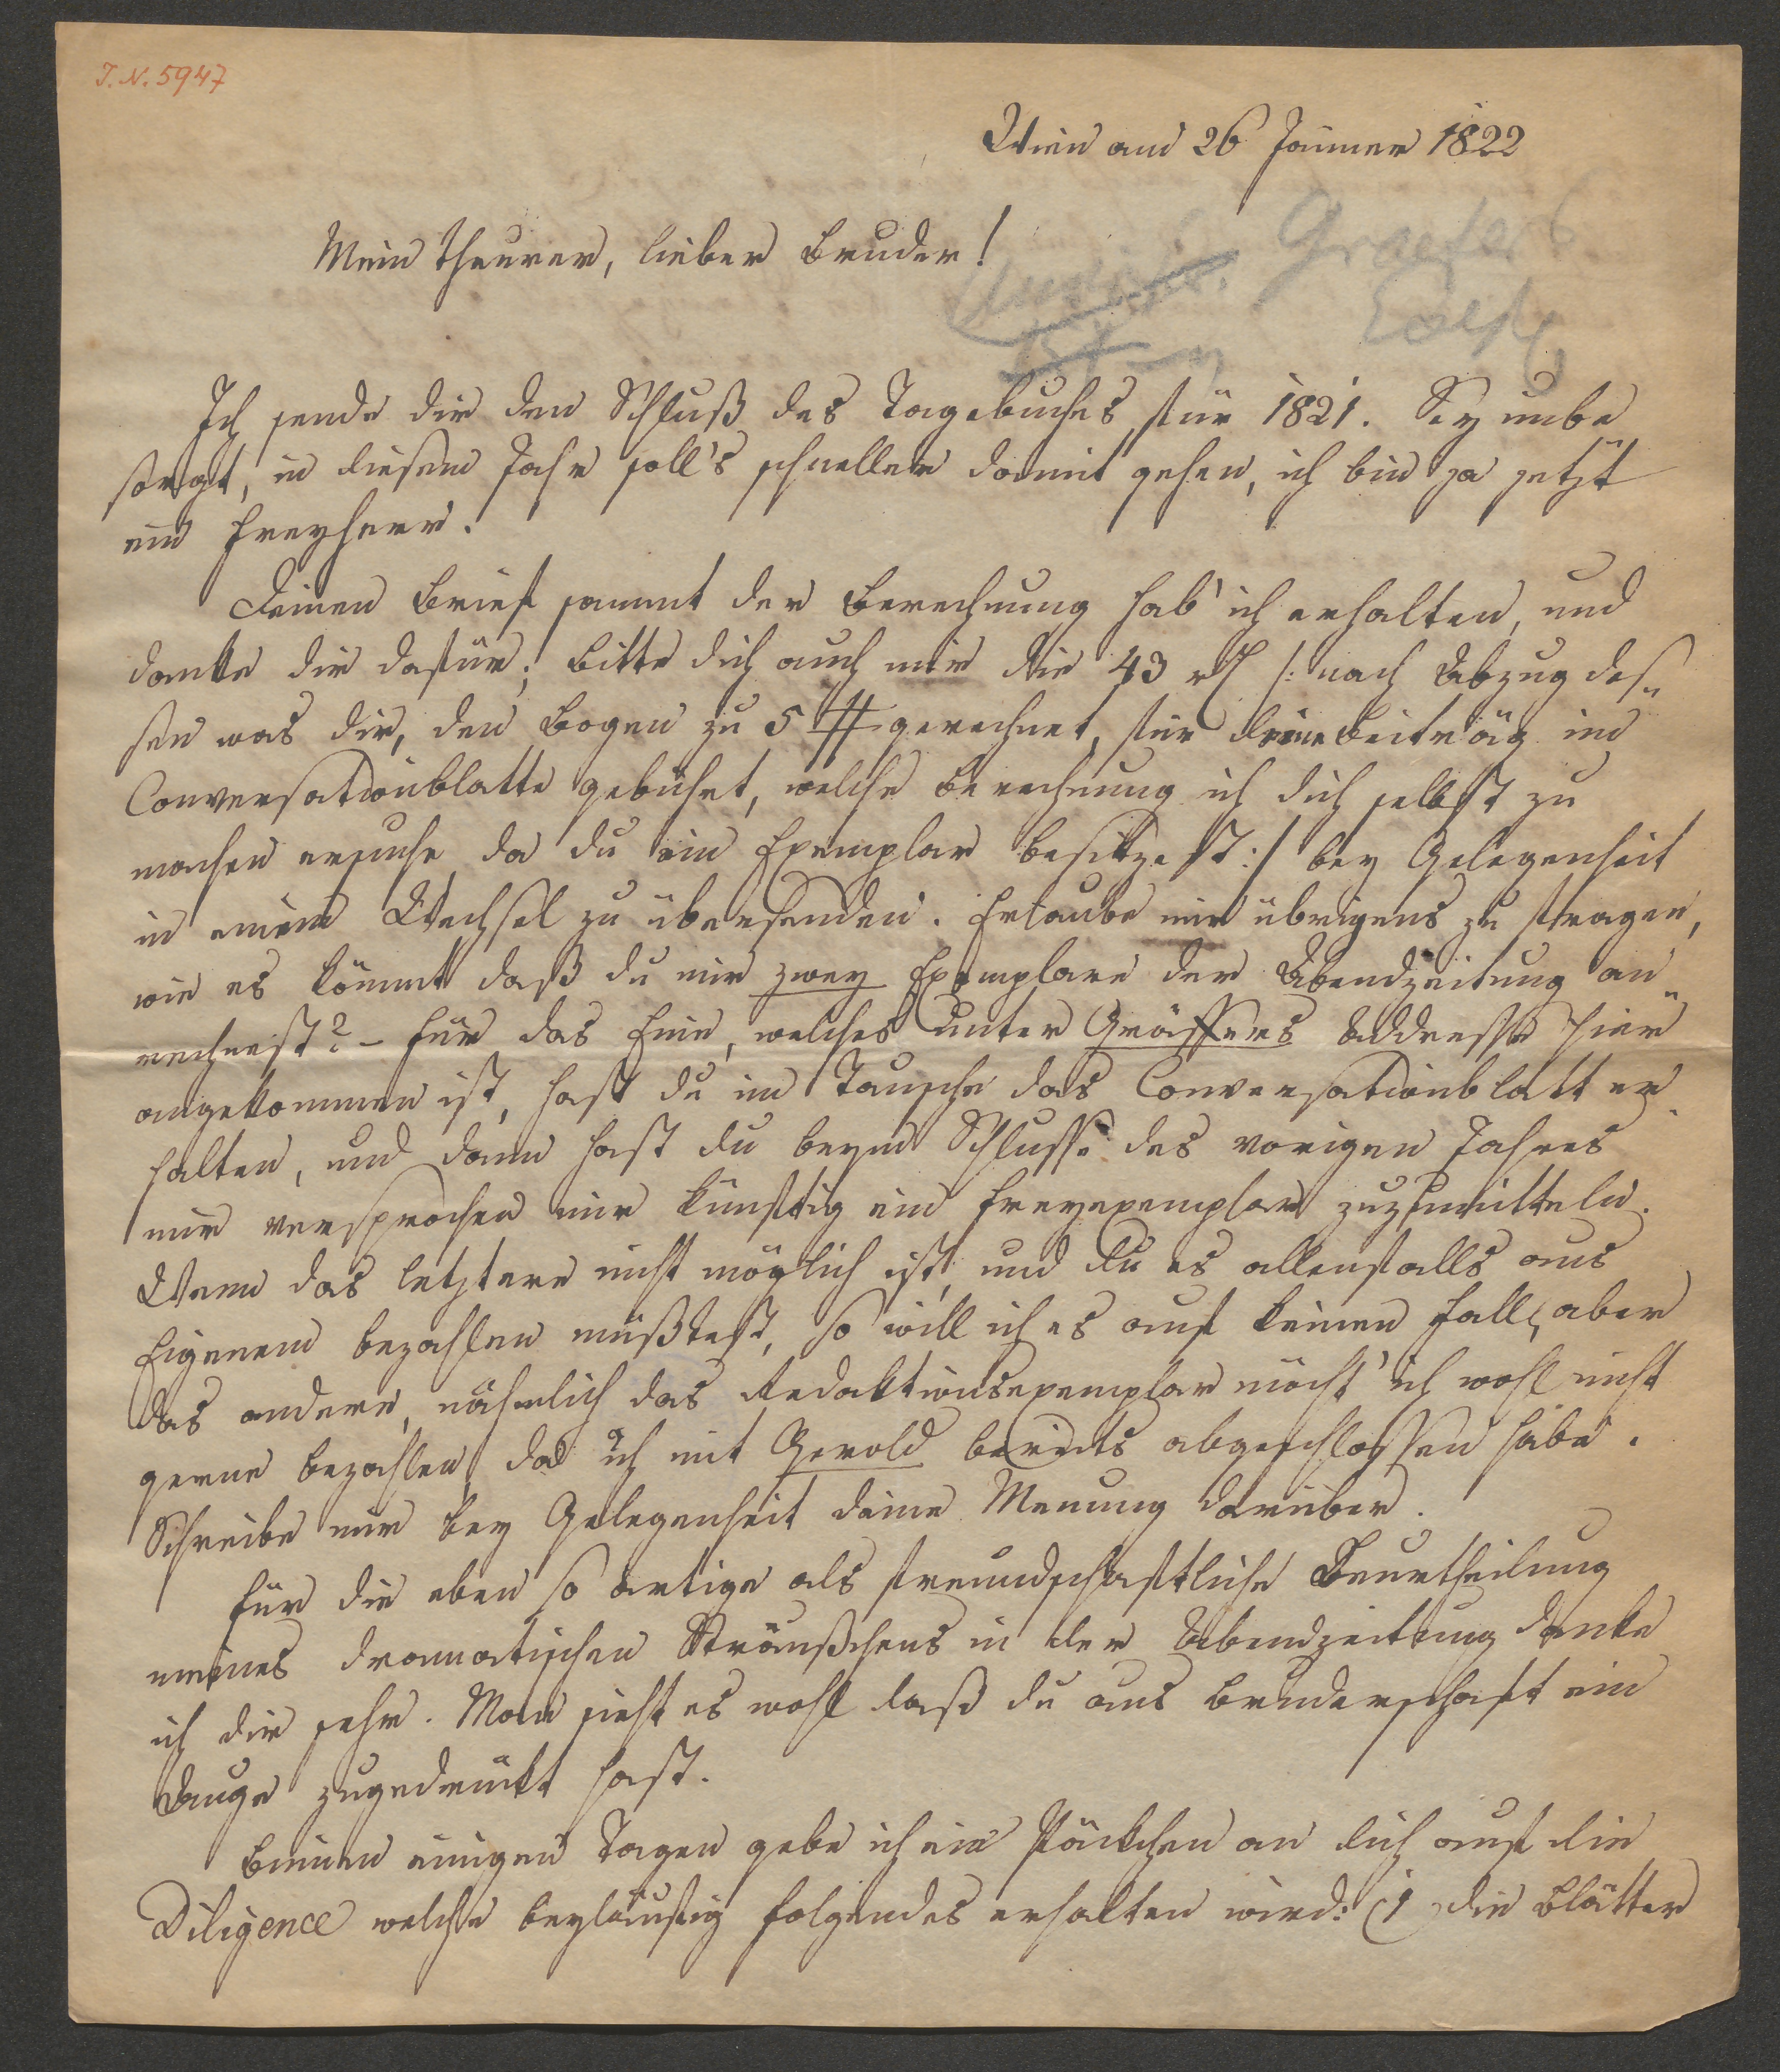 I.N. 5947
Wien am 26 Jänner 1822
Mein theurer, lieber Bruder!
Graeffer
Ich sende dir den Schluß des Tagebuches für 1821. Sey unbe
sorgt, in diesem Jahr soll's schneller damit gehen, ich bin ja jetzt
ein Freyherr.
Deinen Brief sammt der Berechnung hab' ich erhalten, und
danke dir dafür; bitte dich auch mir die 43 /: nach Abzug des„
sen was dir, den Bogen zu 5 # gerechnet, für deine Beiträg im
Conversationblatte gebührt, welche Berechnung ich dich selbst zu
machen ersuche, da du ein Exemplar besitzest :/ bey Gelegenheit
in einem Wechsel zu übersenden. Erlaube mir übrigens zu fragen,
wie es kömmt daß du mir zwey Exemplare der Abendzeitung an„
rechnest? – Für das Eine, welches unter Gräffers Addresse hier
angekommen ist, hast du im Tausche das Conversationblatt er„
halten, und dann hast du beym Schlusse des vorigen Jahres
mir versprochen mir künftig ein Freyexemplar zuzumitteln.
Wenn das letztere nicht möglich ist, und du es allenfalls aus
Eigenem bezahlen müßtest, so will ich es auf keinen Fall, aber
das andere, nähmlich das Redaktionsexemplar möcht' ich wohl nicht
gerne bezahlen, da ich mit Gerold bereits abgeschlossen habe.
Schreibe mir bey Gelegenheit deine Meinung darüber.
Für die eben so artige als freundschaftliche Beurtheilung
meines dramatischen Sträußchens in der Abendzeitung danke
ich dir sehr. Man sieht es wohl daß du aus Bruderschaft ein
Auge zugedrückt hast.
Binnen einigen Tagen gebe ich ein Päckchen an dich auf die
Diligence welche beyläufig folgendes erhalten wird: (1 die Blätter